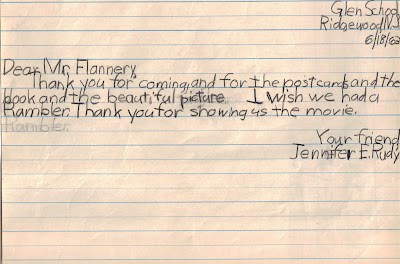 Glen School
Ridgewood N.J
6/18/62
Dear Mr. Flannery,
Thank you for coming, and for the postcards and the
book and the beautiful picture. I wish we had a
Rambler. Thank you for showing us the movie.
Rambler.
Your friend
Jennifer E. Rudy